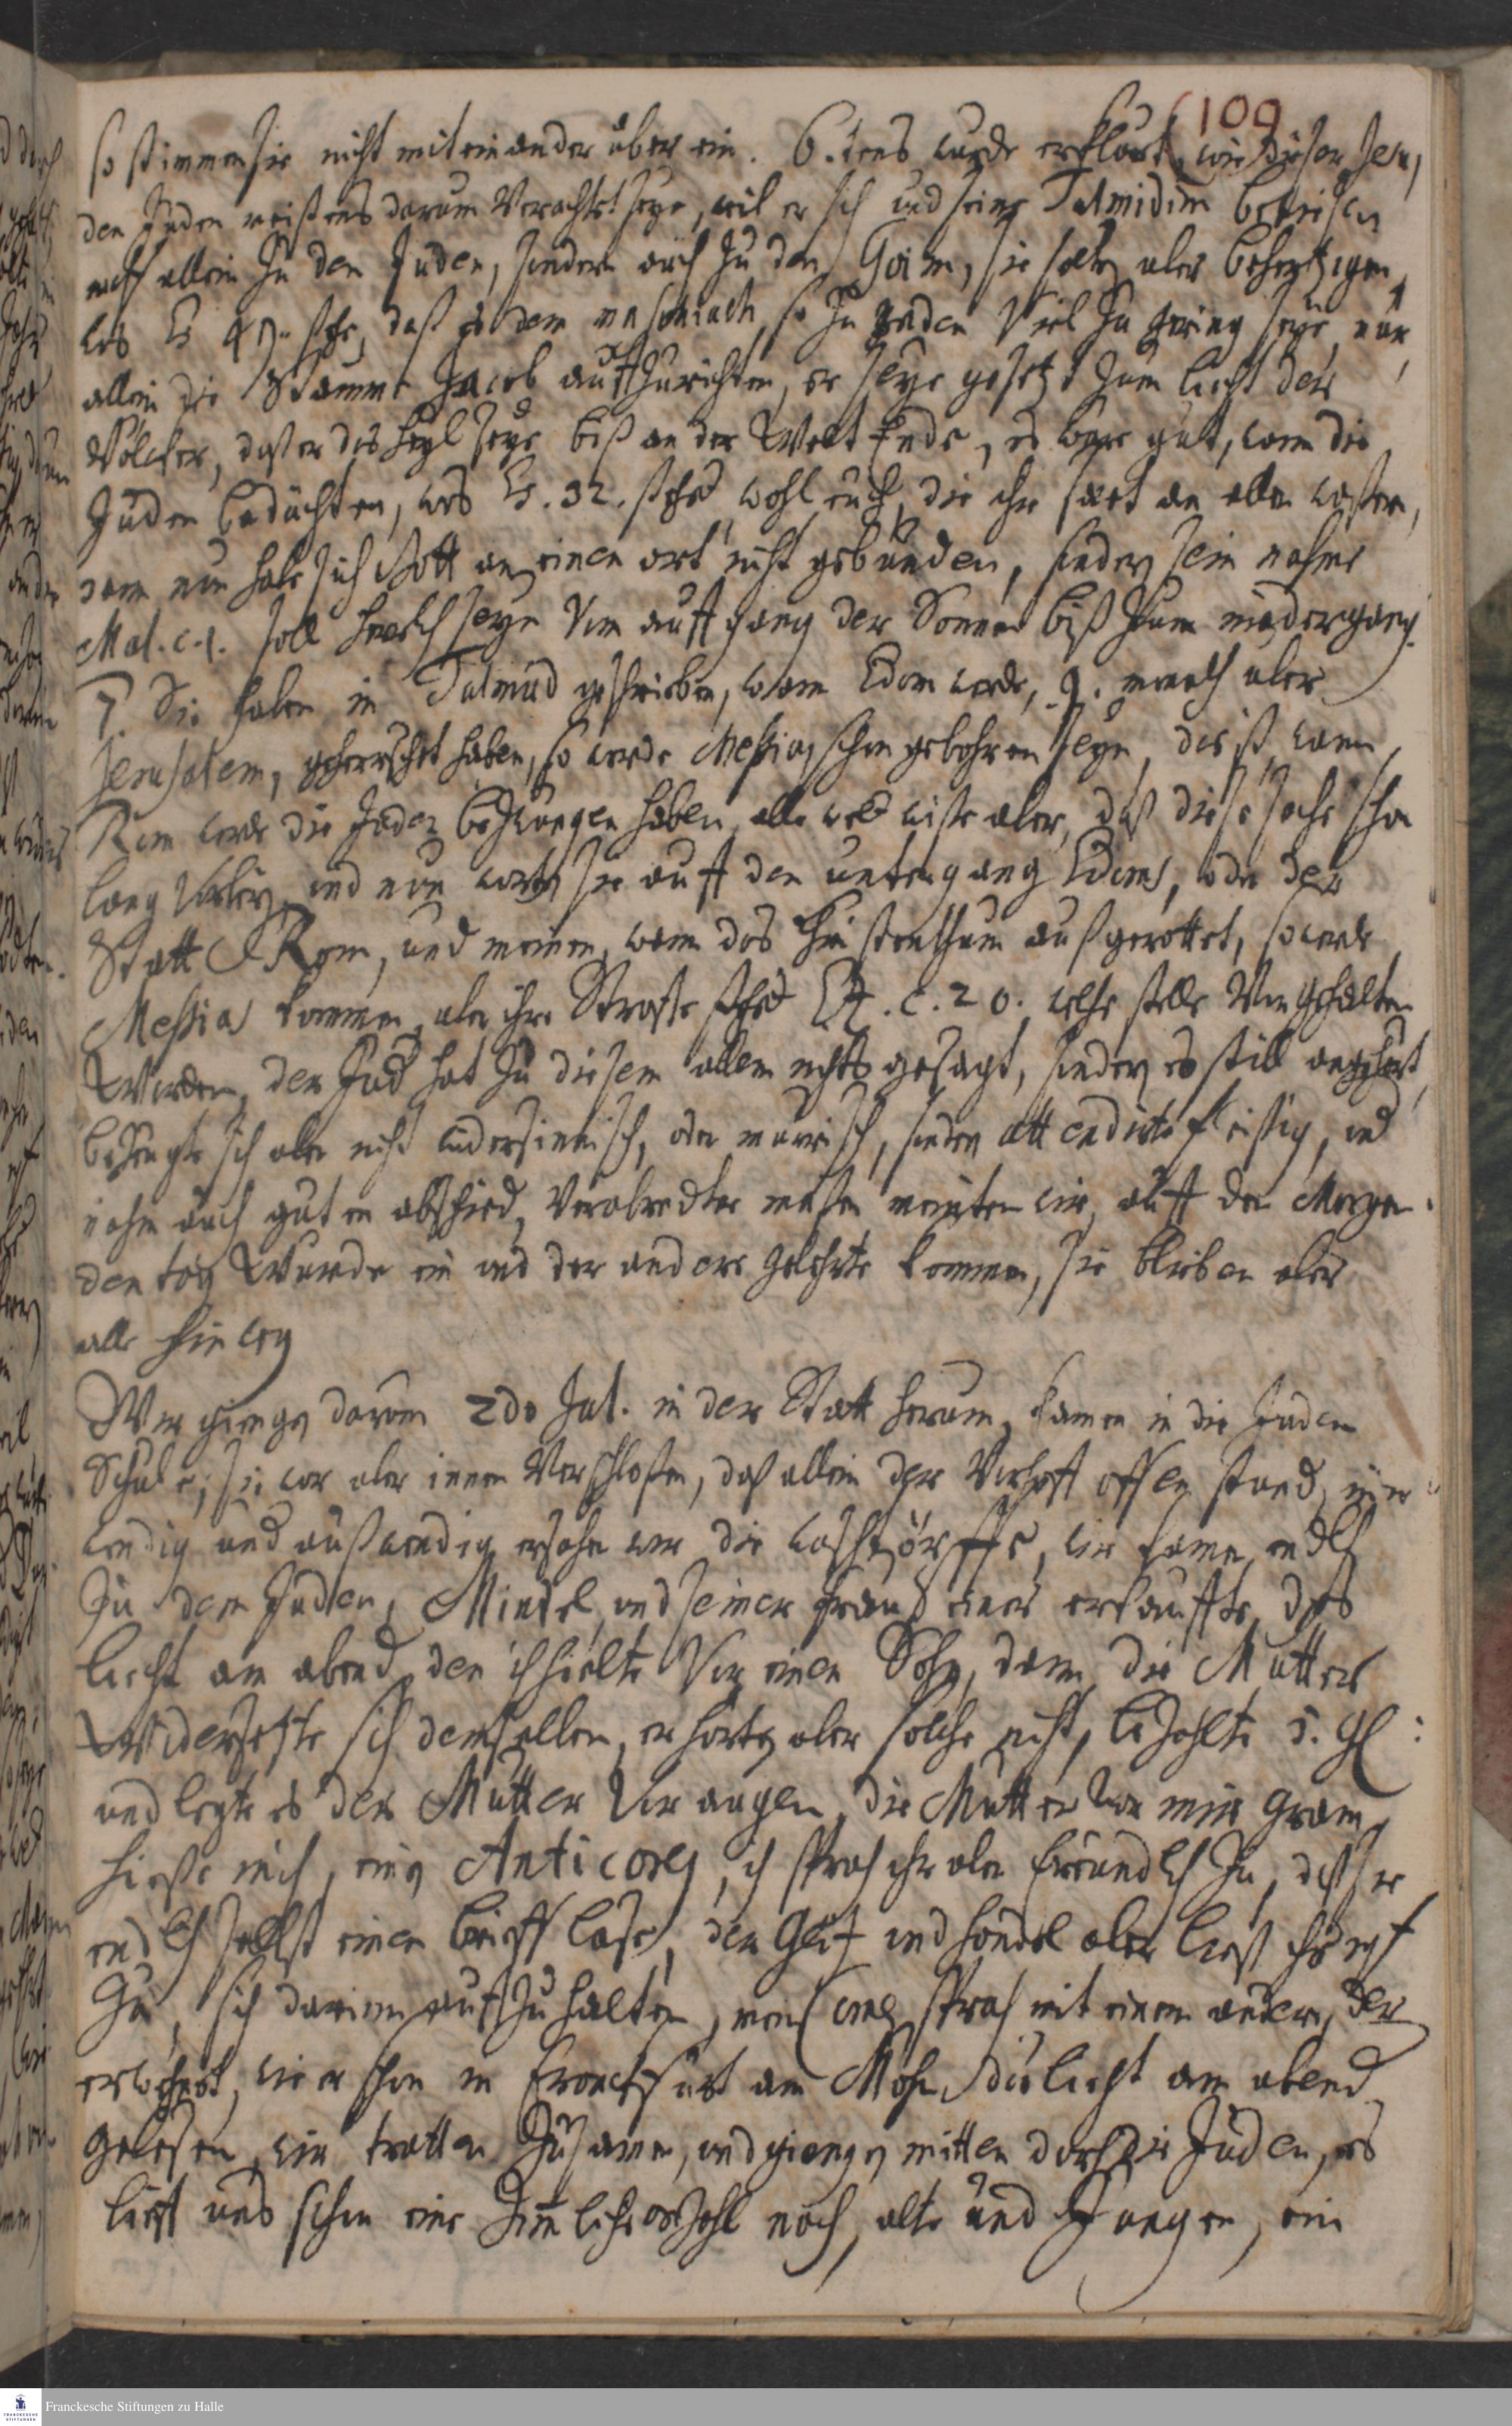 109
so stimmen sie nicht mit einander über ein. 6.tens wurde erklärt, wie dieser Jesu,
den Juden meistens darum verachtet seye, weil er sich und seine Talmidim bewiesen
nicht allein zu den Juden, sondern auch zu den Goim, sie solten aber behertzigen,
was Es 49. stehe, daß es dem maschiach, so zu reden viel zu gering seye, nur
allein die Stämme Jacob auffzurichten, er seye gesetzt zum liecht der
Völcker, daß er das heyl seye biß an der Welt Ende, es were gut, wann die
Juden bedächten, was Es. 32. stehet, wohl euch, die ihr säet an allen wassern,
dann nun habe sich Gott an einen ort nicht gebunden, sondern sein nahme
Mal. c. 1. soll herrlich seyn vom auffgang der Sonnen biß zum niedergang.
7. Sie haben in Talmud geschrieben, wann Edom werde, 9. monath über
Jerusalem, geherrschet haben, so werde Messias schon gebohren seyn, das ist, wann
Rom werde die Juden bezwungen haben, alle welt wiste aber, daß diese sache schon
lang vorbey, und nun warten sie auff den untergang Edoms, oder der
Statt Rom, und meinen, wann das Christenthum außgerottet, so werde
Messias kommen, aber ihre Straffe stehet Ez. c. 20. welche stelle vorgehalten
worden, der Jud hat zu diesem allem nichts gesagt, sondern es still angehört,
bezeugte sich aber nicht widersinnisch, oder mürrisch, sondern attendirte fleissig, und
nahm auch guten abschied, verabredter massen meinten wir, auff den Morgen-
den tag wurde ein und der andere gelehrte kommen, sie blieben aber
alle hinweg
Wir giengen darum 2do Jul. in der Statt herum, kamen in die Juden
Schule; sie war aber innen verschlossen, daß allein der Vorhoff offen stand, inn-
wendig und außwendig ersahen wir die, wir kamen endlich
zu dem Juden, Mindel, und seiner Frau, einer erkauffte, das
liecht am abend, den ich hielte vor einen Sohn, dann die Mutter
widersetzte sich demselben, er hörte aber solche nicht, bezahlte 5. gl:
und legte es der Mutter vor augen, die Mutter war mir gram,
hiesse mich, ein Anticorej, ich sprach ihr aber freundlich zu, daß sie
endlich selbst einen brieff lase, der Geitz und handel aber liess ihr nicht
zu, sich darinnen auffzuhalten, mein Comes sprach mit einem andern, der
erwehnet, wie er schon in Franckfurt am Mahn das liecht am abend
gelesen, wir tratten zusamen, und giengen mitten durch die Juden, es
lieff uns schon eine zimliche anzahl nach, alte und Jungen, ein
Franckesche Stiftungen zu Halle